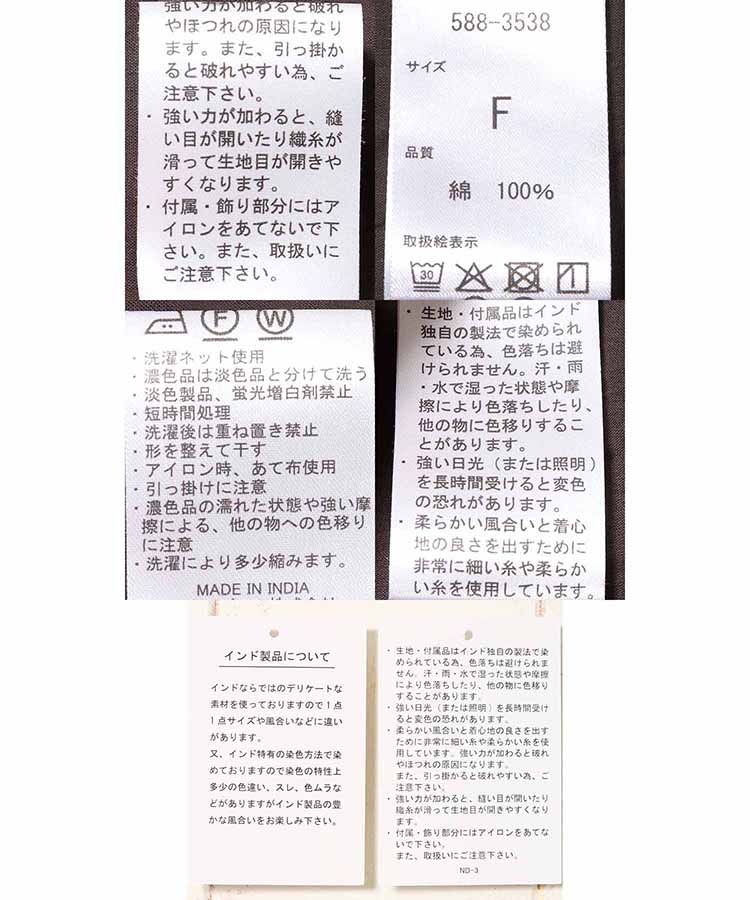 強い力が加わると破れ
やほつれの原因になり
ます。また、引っ掛か
ると破れやすい為、ご
注意下さい。
・強い力が加わると、縫
い目が開いたり織糸が
滑って生地目が開きや
すくなります。
・付属・飾り部分にはア
イロンをあてないで下
さい。また、取扱いに
ご注意下さい。
588-3538
サイズ
F
品質
綿 100%
取扱絵表示
30
F W
・洗濯ネット使用
・濃色品は淡色品と分けて洗う
・淡色製品、蛍光増白剤禁止
・短時間処理
・洗濯後は重ね置き禁止
・形を整えて干す
・アイロン時、あて布使用
・引っ掛けに注意
・濃色品の濡れた状態や強い摩
擦による、他の物への色移り
に注意
・洗濯により多少縮みます。
MADE IN INDIA
・生地・付属品はインド
独自の製法で染められ
ている為、色落ちは避
けられません。汗・雨
・水で湿った状態や摩
擦により色落ちしたり、
他の物に色移りするこ
とがあります。
・強い日光（または照明）
を長時間受けると変色
の恐れがあります。
・柔らかい風合いと着心
地の良さを出すために
非常に細い糸や柔らか
い糸を使用しています。
インド製品について
インドならではのデリケートな
素材を使っておりますので１点
１点サイズや風合いなどに違い
があります。
又、インド特有の染色方法で染
めておりますので染色の特性上
多少の色違い、スレ、色ムラな
どがありますがインド製品の豊
かな風合いをお楽しみ下さい。
・生地・付属品はインド独自の製法で染
められている為、色落ちは避けられま
せん。汗・雨・水で湿った状態や摩擦
により色落ちしたり、他の物に色移り
することがあります。
・強い日光（または照明）を長時間受け
ると変色の恐れがあります。
・柔らかい風合いと着心地の良さを出す
ために非常に細い糸や柔らかい糸を使
用しています。強い力が加わると破れ
やほつれの原因になります。
また、引っ掛かると破れやすい為、ご
注意下さい。
・強い力が加わると、縫い目が開いたり
織糸が滑って生地目が開きやすくなり
ます。
・付属・飾り部分にはアイロンをあてな
いで下さい。
また、取扱いにご注意下さい。
ND-3